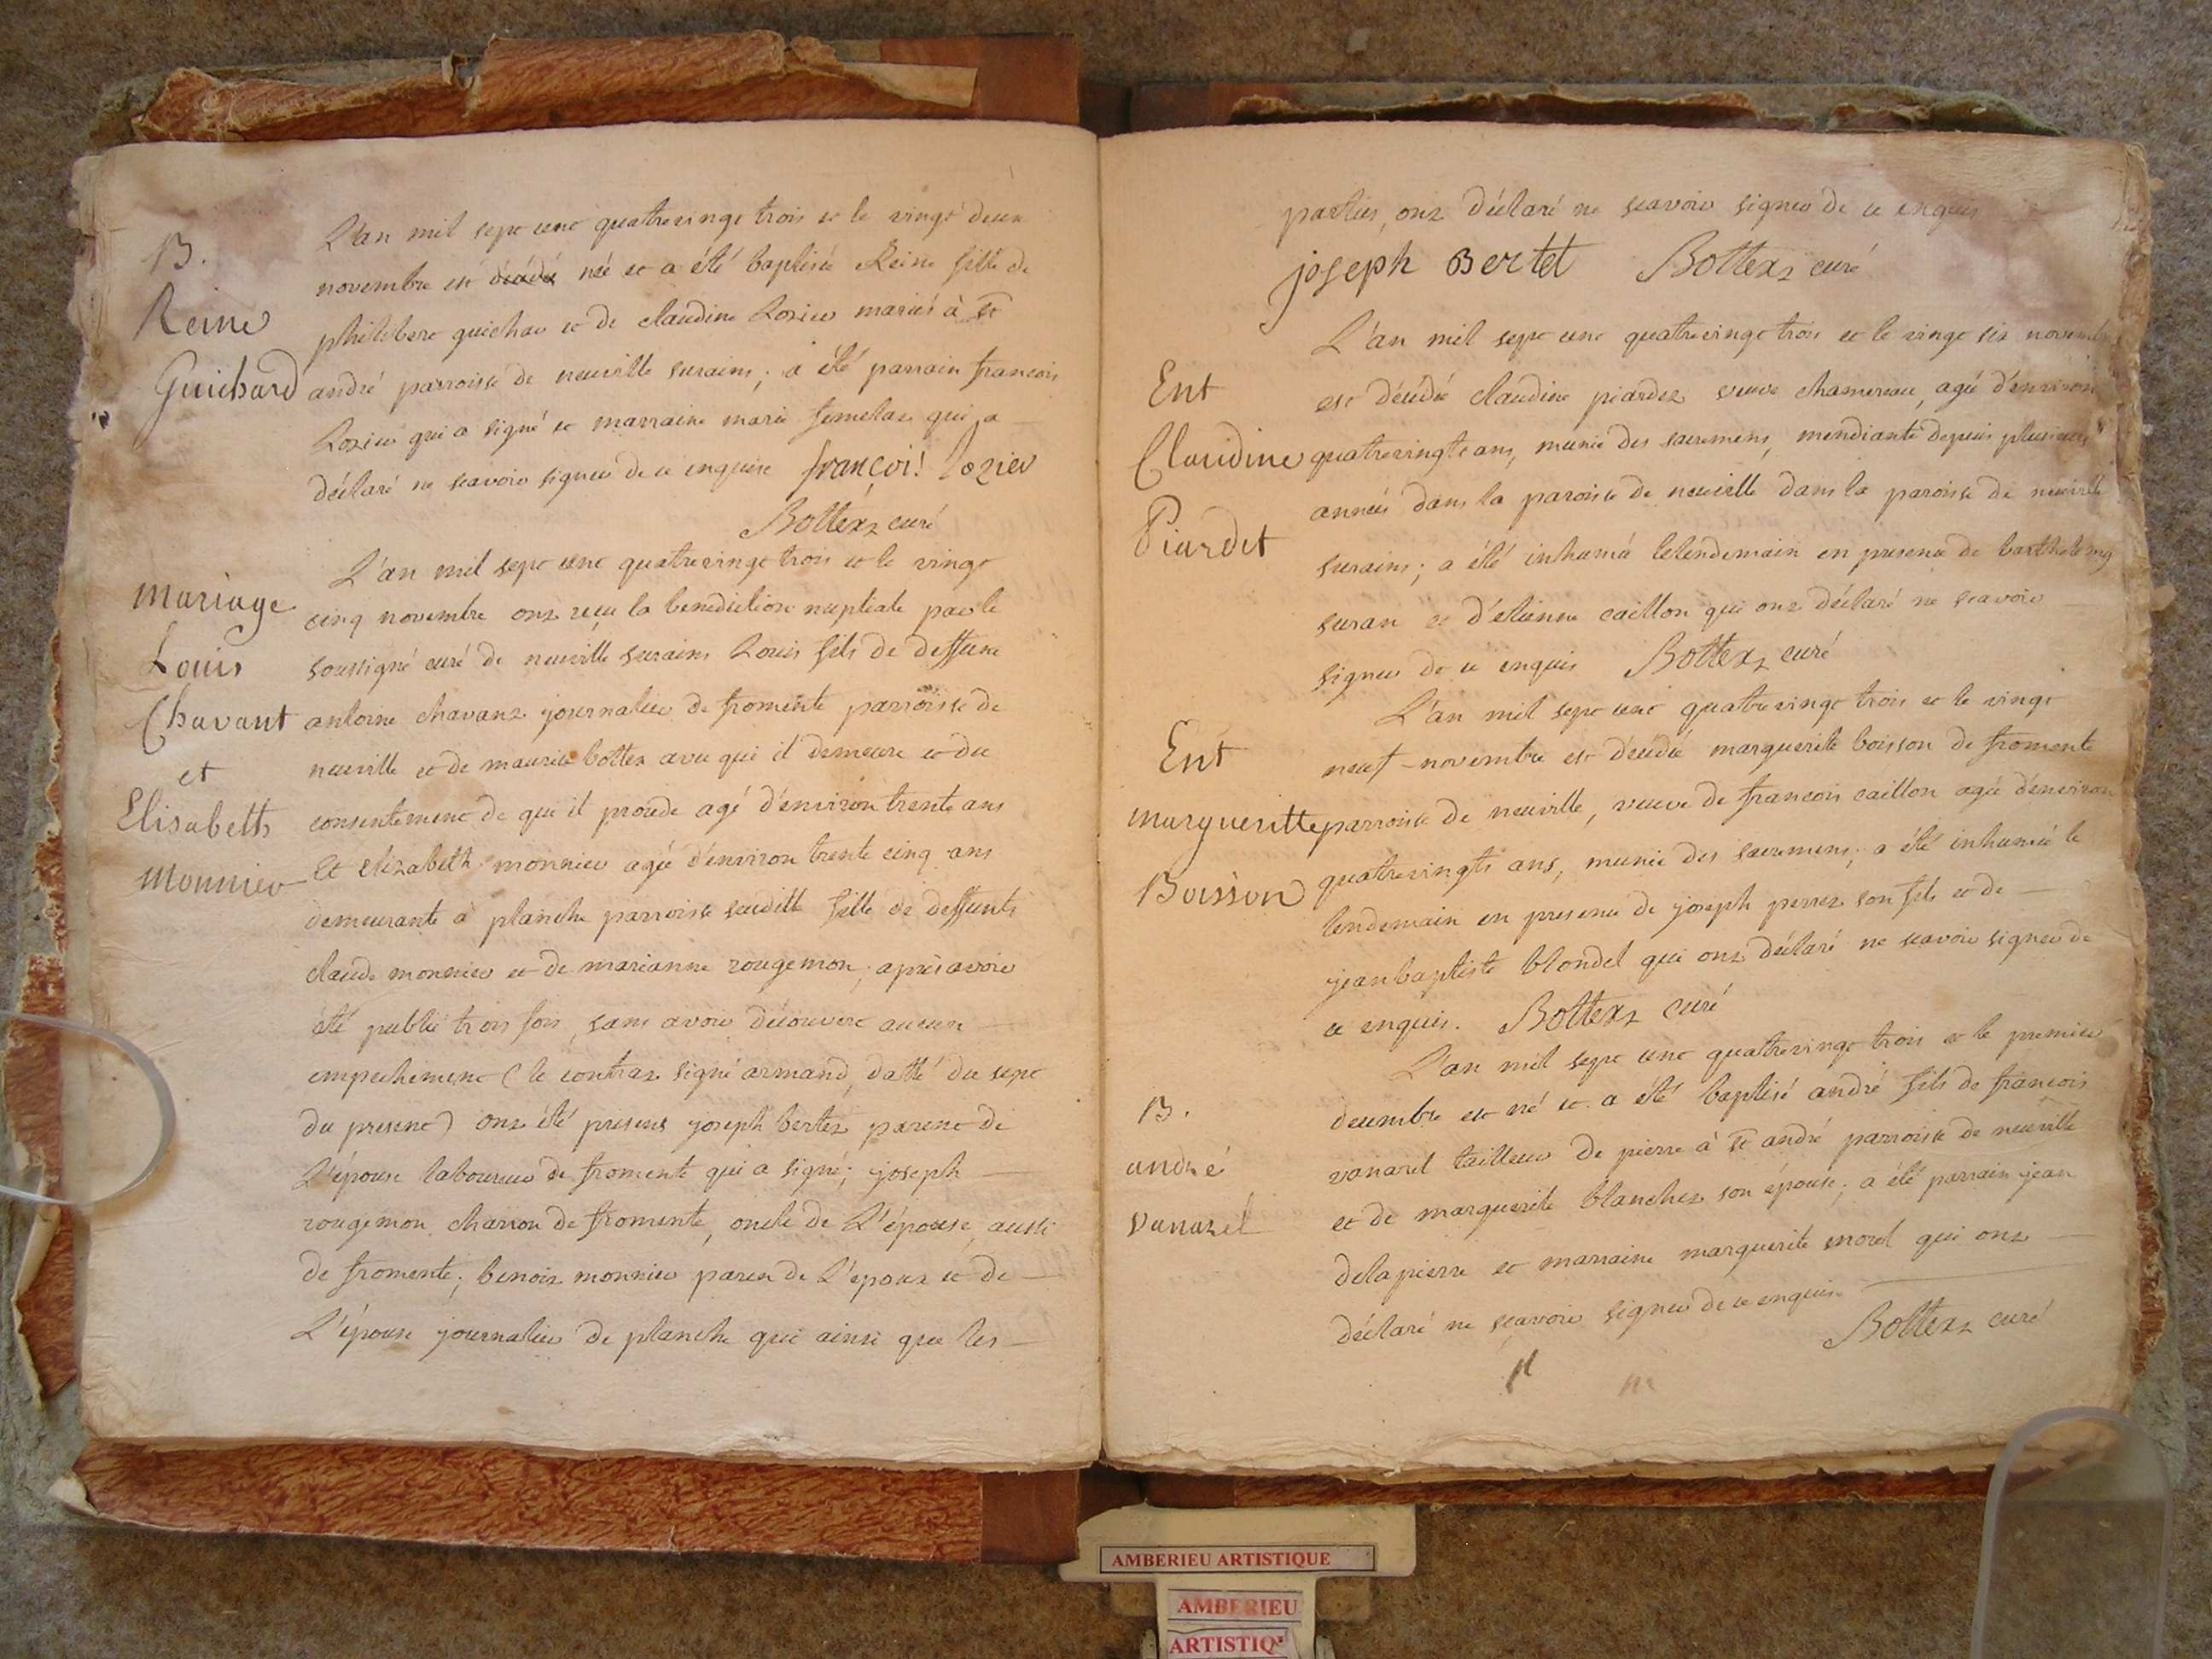 B.
Reine
Guichard
L'an mil sept cent quatrevingt trois et le vingt deux
novembre est décédé née et a été baptisée Reine fille de
philibert guichar et de claudine Lozier mariés à St
andré parroisse de neuville surains; a été parrain francois
Lozier qui a signé et marraine marie femelaz qui a
déclaré ne scavoir signer de ce enquise françoi! lozier
Bottex curé
Mariage
Louis
Chavant
et
Elisabeth
Monnier
L'an mil sept cent quatrevingt trois et le vingt
cinq novembre ont reçu la benediction nuptiale par le
soussigné curé de neuville surains Louis fils de deffunt
antoine chavant journalier de fromente parroisse de
neuville et de maurice bottex avec qui il demeure et du
consentement de qui il procede agé d'environ trente ans
Et elizabeth monnier agée d'environ trente cinq ans
demeurante à planche parroisse susditte fille de deffunts
claude monnier et de marianne rougemon; après avoir
été publié trois fois, sans avoir découvert aucun
empechement (le contrat signé armand, datté du sept
du present) ont été presens joseph bertet parent de
L'épouse laboureur de fromente qui a signé; joseph
rougemon charron de fromente, oncle de L'épouse, aussi
de fromente; benoit monnier paren de L'epoux et de
L'épouse journalier de planche qui ainsi que les
parties, ont déclaré ne scavoir signer de ce enquis
joseph Bertet Bottex curé
Ent
Claudine
Piardet
L'an mil sept cent quatrevingt trois et le vingt six novembre
est décédée claudine piardet veuve chamereau, agée d'environ
quatrevingts ans, munie des sacremens, mendiante depuis plusieurs
années dans la paroisse de neuville dans la paroisse de neuville
surains; a été inhumée lelendemain en presence de barthelemy
suran et d'etienne caillon qui ont déclaré ne scavoir
signer de ce enquis Bottex curé
Ent
Margueritte
Boisson
L'an mil sept cent quatrevingt trois et le vingt
neuf novembre est décédée marguerite boisson de fromente
parroisse de neuville, veuve de francois caillon agée d'environ
quatrevingts ans, munie des sacremens; a été inhumée le
lendemain en presence de joseph perret son fils et de
jeanbaptiste blondel qui ont déclaré ne scavoir signer de
ce enquis. Bottex curé
B.
andré
Vanarel
L'an mil sept cent quatrevingt trois et le premier
decembre est né et a été baptisé andré fils de francois
vanarel tailleur de pierre à St andré parroisse de neuville
et de marguerite blanchet son épouse; a été parrain jean
delapierre et marraine marguerite morel qui ont
déclaré ne scavoir signer de ce enquis
Bottex curé
AMBERIEU ARTISTIQUE
AMBERIEU
ARTISTIQ